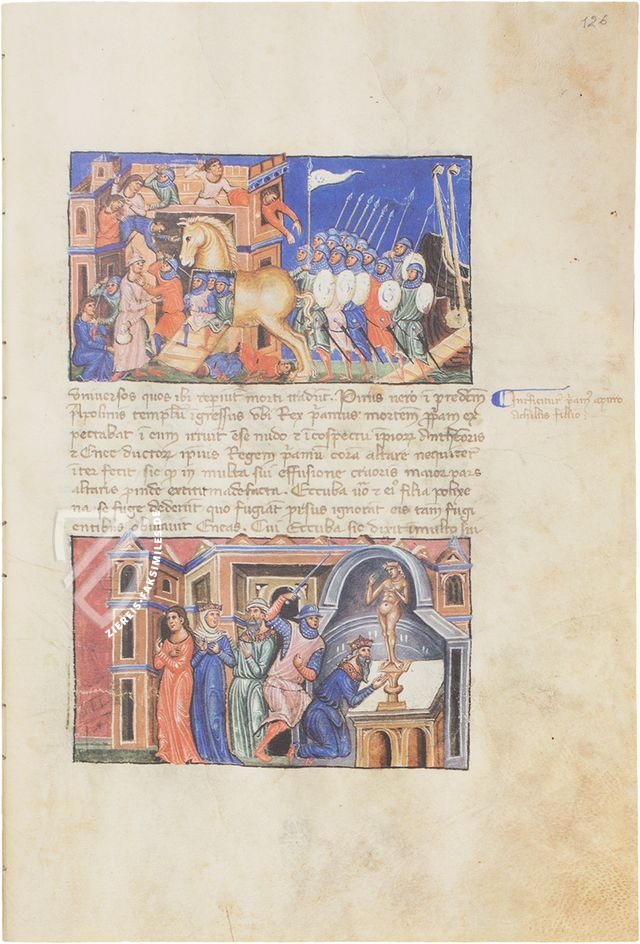 126
universos quos ibi repiut morti tradut. Pirus vero i predcm
Apolinis templu igressus ubi Rex pamus mortem ppam ex
pectabat i eum irruit ese nudo z i cospectu ipior Antheoris
z Enee ductor ipius Regem pamu cora altare nequiter
iter fecit sic q i multa sui effusione cruoris maior pars
altaris pinde extitit madefacta. Eccuba vo z ei filia polixe
na se fuge dederut quo fugiat prsus ignorat eis tam fugi
entibus obviavit Eneas. Cui Eccuba sic dixit i multo
Interficitur pam a piro
Achillis fillio
ZIEREIS-FAKSIMILES.DE